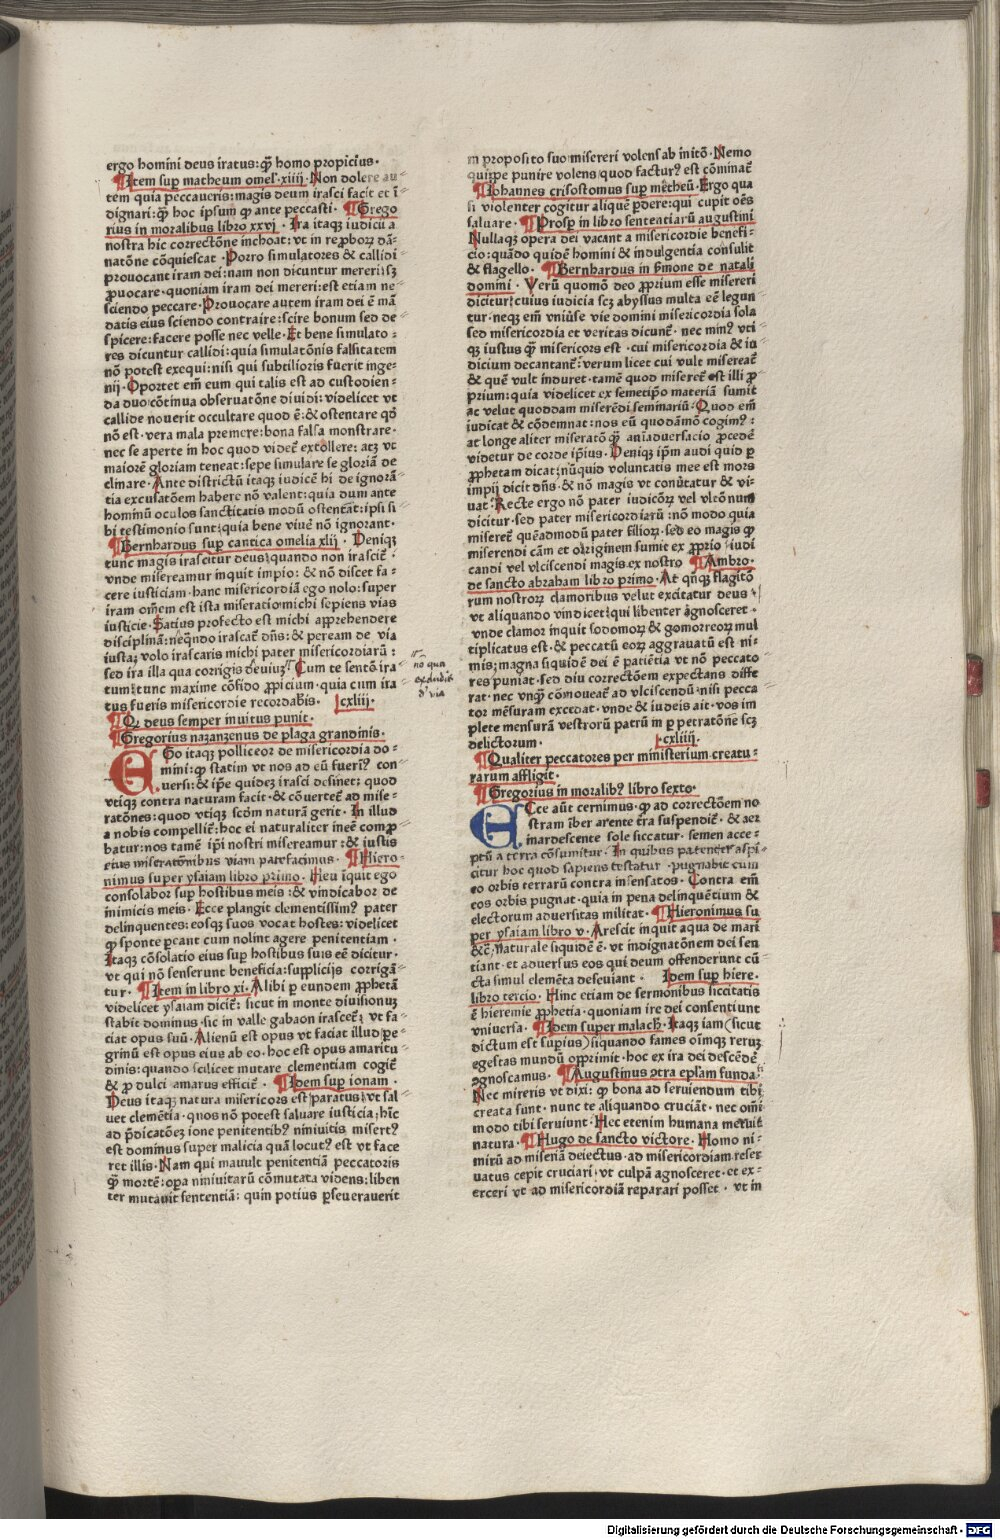 ergo homini deus iratus: qʒ̄ homo propicius.
¶Item suꝑ matheum omel'. xiiij. Non dolere au⸗
tem quia peccaueris: magis deum irasci facit et ī
dignari: qʒ̄ hoc ipsum ꝙ ante peccasti. ¶Grego
rius in moralibus libro xxvj. Ira itaqʒ iudicii a
nostra hic correctōne inchoat: vt in reꝓborꝝ dā⸗
natōne cōquiescat. Porro simulatores & callidi⸗
prouocant iram dei: nam non dicuntur mereri: sʒ
ꝓuocare. quoniam iram dei mereri: est etiam ne⸗
sciendo peccare. Prouocare autem iram dei ē mā
datis eius sciendo contraire: scire bonum sed de⸗
spicere: facere posse nec velle. Et bene simulato⸗
res dicuntur callidi: quia simulatōnis falsitatem
nō potest exequi: nisi qui subtilioris fuerit inge⸗
nij. Oportet em̄ eum qui talis est ad custodien⸗
da duo cōtinua obseruatōne diuidi: videlicet vt
callide nouerit occultare quod ē: & ostentare qd̓
nō est. vera mala premere: bona falsa monstrare.
nec se aperte in hoc quod videt̄ extollere: atqʒ vt
maiorē gloriam teneat: sepe simulare se gloriā de
clinare. Ante districtū itaqʒ iudicē hi de ignorā⸗
tia excusatōem habere nō valent: quia dum ante
hominū oculos sanctitatis modū ostentāt: ipsi si
bi testimonio sunt: quia bene viuē nō ignorant.
¶Bernhardus suꝑ cantica omelia xlij. Deniqʒ
tunc magis irascitur deus: quando non irascit̄.
vnde misereamur inquit impio: & nō discet fa⸗
cere iusticiam. hanc misericordiā ego nolo: super
iram om̄em est ista miseratio michi sepiens vias
iusticie. Satius profecto est michi apprehendere
disciplinā: neqn̄do irascat̄ dn̄s: & peream de via
iusta: volo irascaris michi pater misericordiarū:
sed ira illa qua corrigis deuiuʒ. Cum te sentō ira⸗
tum: tunc maxime cōfido ꝓpicium. quia cum ira⸗
tus fueris misericordie recordabis. cxliij.
¶Qʒ deus semper inuitus punit.
¶Gregorius nazanzenus de plaga grandinis.
EGo itaqʒ polliceor de misericordia do⸗
mini: ꝙ statim vt nos ad eū fuerimꝰ con⸗
uersi: & ip̄e quideʒ irasci desinet: quod
vtiqʒ contra naturam facit. & cōuertet̄ ad mise⸗
ratōnes: quod vtiqʒ scd̄m naturā gerit. In illud
a nobis compellit̄: hoc ei naturaliter ineē comꝓ
batur: nos tamē ip̄i nostri misereamur: & iustis
eius miseratōnibus viam patefacimus. ¶Hiero⸗
nimus super ysaiam libro primo. Heu īquit ego
consolabor suꝑ hostibus meis: & vindicabor de
inimicis meis. Ecce plangit clementissimꝰ pater
delinquentes: eosqʒ suos vocat hostes: videlicet
ꝙ sponte ꝑeant cum nolint agere penitentiam.
Itaqʒ cōsolatio eius suꝑ hostibus suis eē dicitur.
vt qui nō senserunt beneficia: supplicijs corrigā⸗
tur. ¶Item in libro xi. Alibi ꝑ eundem ꝓphetā
videlicet ysaiam dicit̄: sicut in monte diuisionuʒ
stabit dominus. sic in valle gabaon irascet̄: vt fa⸗
ciat opus suū. Alienū est opus vt faciat illud: ꝑe⸗
grinū est opus eius ab eo. hoc est opus amaritu⸗
dinis: quando scilicet mutare clementiam cogit̄
& ꝓ dulci amarus efficit̄. ¶Idem suꝑ ionam.
Deus itaqʒ natura misericors est: paratus: vt sal⸗
uet clemētia. quos nō potest saluare iusticia; hīc
ad p̄dicatōeʒ ione penitentibꝰ niniuitis misertꝰ
est dominus super malicia quā locutꝰ est vt face
ret illis. Nam qui mauult penitentiā peccatoris
qʒ̄ mortē: oꝑa niniuitarū cōmutata videns: liben
ter mutauit sententiā: quin potius ꝑseuerauerit
no qua
excludis
d' via
in proposito suo misereri volens ab initō. Nemo
quippe punire volens quod facturꝰ est cōminat̄
¶Iohannes crisostomus suꝑ metheū. Ergo qua
si violenter cogitur aliquē ꝑdere: qui cupit oēs
saluare. ¶Prosꝑ in libro sententiarū augustini
Nullaqʒ opera dei vacant a misericordie benefi⸗
cio: quādo quidē homini & indulgentia consulit
& flagello. ¶Bernhardus in s̄mone de natali
domini. Verū quomō deo ꝓprium esse misereri
dicitur: cuius iudicia scʒ abyssus multa eē legun
tur. neqʒ em̄ vniūse vie domini misericordia sola
sed misericordia et veritas dicunt̄. nec minꝰ vti⸗
qʒ iustus qʒ̄ misericors est. cui misericordia & iu
dicium decantant̄: verum licet cui vult misereat̄
& quē vult induret. tamē quod miseret̄ est illi ꝓ
prium: quia videlicet ex semetip̄o materiā sumit
ac velut quoddam miserēdi seminariū. Quod em̄
iudicat & cōdemnat: nos eū quodāmō cogimꝰ:
at longe aliter miseratō qʒ̄ aniaduersacio ꝓcedē
videtur de corde ip̄ius. Deniqʒ ip̄m audi quid ꝑ
ꝓphetam dicat: nūquid voluntatis mee est mors
impij dicit dn̄s. & nō magis vt conūtatur & vi⸗
uat. Recte ergo nō pater iudicōꝝ vel vltōnum
dicitur. sed pater misericordiarū: nō modo quia
miseret̄ quēadmodū pater filiorꝝ. sed eo magis ꝙ
miserendi cām et originem sumit ex ꝓprio. iudi
candi vel vlciscendi magis ex nostro ¶Ambro.
de sancto abraham libro primo. At qn̄qʒ flagitō
rum nostrorꝝ clamoribus velut excitatur deus
vt aliquando vindicet: qui libenter agnosceret.
vnde clamor inquit sodomorꝝ & gomorreorꝝ mul
tiplicatus est. & peccatū eorꝝ aggrauatū est ni⸗
mis; magna siquidē dei ē patiētia vt nō peccato⸗
res puniat. sed diu correctōem expectans diffe
rat. nec vnqʒ̄ cōmoueat̄ ad vlciscendū. nisi pecca
tor mēsuram excedat. vnde & iudeis ait. vos im
plete mensurā vestrorū patrū in ꝑ petratōne scʒ
delictorum. cxliiij.
¶Qualiter peccatores per ministerium creatu⸗
rarum affligit.
¶Gregorius in moralibꝰ libro sexto.
ECce aūt cernimus. ꝙ ad correctōem no
stram īber arente t̄ra suspendit̄. & aer
inardescente sole siccatur. semen acce⸗
ptū a terra cōsumitur. In quibus patenter aspi⸗
citur hoc quod sapiens testatur. pugnabit cum
eo orbis terrarū contra insensatos. Contra em̄
eos orbis pugnat. quia in pena delinquētium &
electorum aduersitas militat. ¶Hieronimus su
per ysaiam libro v. Arescit inquit aqua de mari
&c̄. Naturale siquidē ē. vt indignatōnem dei sen
tiant. et aduersus eos qui deum offenderunt cū⸗
cta simul elemēta deseuiant. Idem suꝑ hiere.
libro tercio. Hinc etiam de sermonibus siccitatis
ē hieremie ꝓphetia. quoniam ire dei consentiunt
vniuersa. ¶Idem super malach̄. Itaqʒ iam (sicut
dictum est supius) siquando fames oīmqʒ reruʒ
egestas mundū opprimit. hoc ex ira dei descēdē
agnoscamus. ¶Augustinus ɔtra ep̄lam funda.
Nec mireris vt dixi: ꝙ bona ad seruiendum tibi
creata sunt. nunc te aliquando cruciāt. nec om̄i
modo tibi seruiunt. Hec etenim humana meruit
natura. ¶Hugo de sancto victore. Homo ni⸗
mirū ad miseriā deiectus. ad misericordiam reser
uatus cepit cruciari. vt culpā agnosceret. et ex⸗
erceri vt ad misericordiā reparari posset. vt in
Digitalisierung gefördert durch die Deutsche Forschungsgemeinschaft - DFG